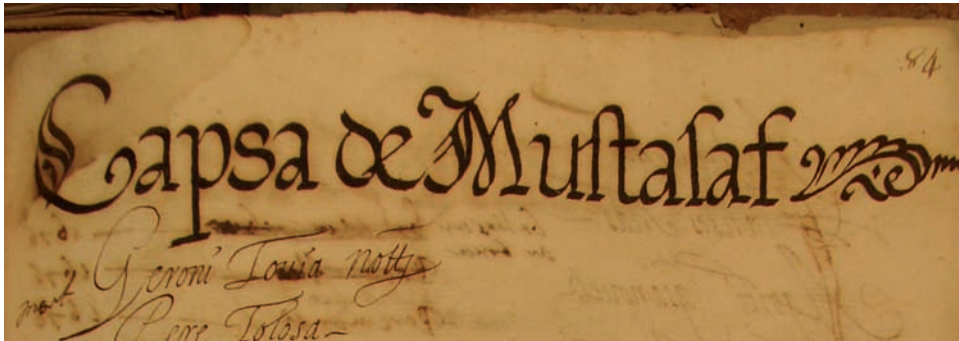 84
Capsa de Mustasaf
mort Geroni Touia nott
Pere Tolosa